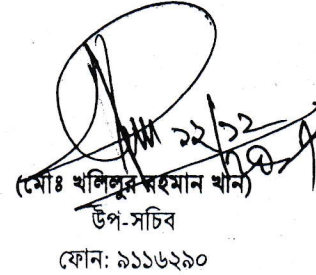 ১২/১২
(মোঃ খলিলুর রহমান খান)
উপ-সচিব
ফোন: ৯১১৬২৯০